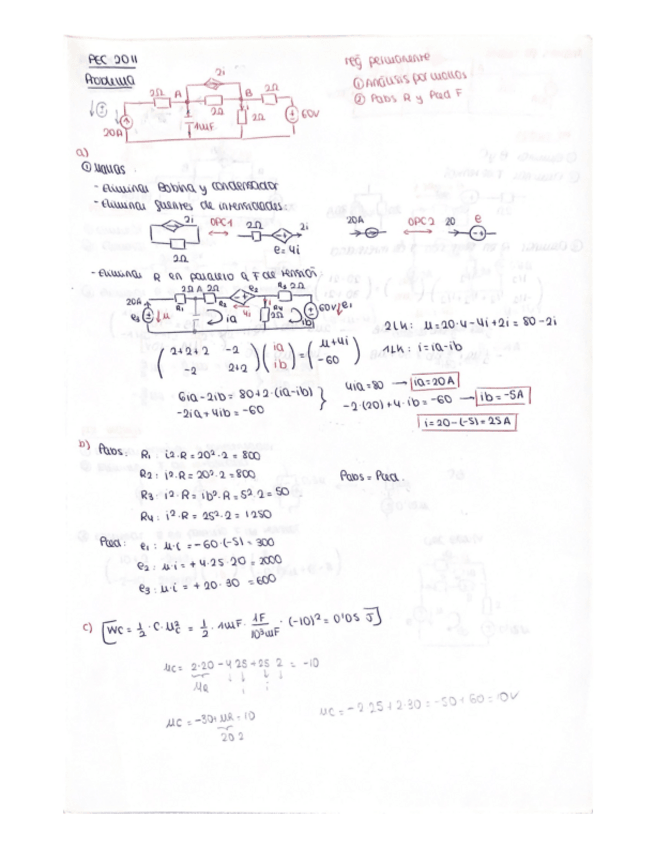 PEC 2011
Problema
reg permanente
① Análisis por mallas
② Pabs R y Pad F
2i
2Ω A B 2Ω
2Ω
20A 1mF 2Ω 60V
a)
① Mallas
- Eliminar Bobina y condensador
- Eliminar fuentes de intensidades:
2i OPC1 2Ω 2i 20A OPC2 20 e
2Ω e=4i
- Eliminar R en paralelo a F de tensión
2Ω A 2Ω e2 R3 2Ω
20A R1 R2 4i R4 60V e1
e3 u ia 2Ω ib
2LK: u=20·4-4i+2i = 80-2i
1LK: i=ia-ib
( 2+2+2 -2 ) ( ia ) = ( u+4i )
( -2 2+2 ) ( ib ) ( -60 )
6ia-2ib = 80+2·(ia-ib)
-2ia+4ib = -60
4ia=80 → ia=20A
-2·(20)+4·ib=-60 → ib=-5A
i=20-(-5)=25A
b) Pabs: R1: i²·R = 20²·2 = 800
R2: i²·R = 20²·2 = 800
R3: i²·R = ib²·R = 5²·2 = 50
R4: i²·R = 25²·2 = 1250
Pabs = Pad.
Pad: e1: u·i = -60·(-5) = 300
e2: u·i = +4·25·20 = 2000
e3: u·i = +20·30 = 600
c) Wc = 1/2 · C·uc² = 1/2 · 1mF · 1F/10³mF · (-10)² = 0'05 J
uc = 2·20 - 4·25 + 25·2 = -10
uR i i
uc = -30+uR = 10
20·2
uc = -2·25+2·30 = -50+60 = 10V